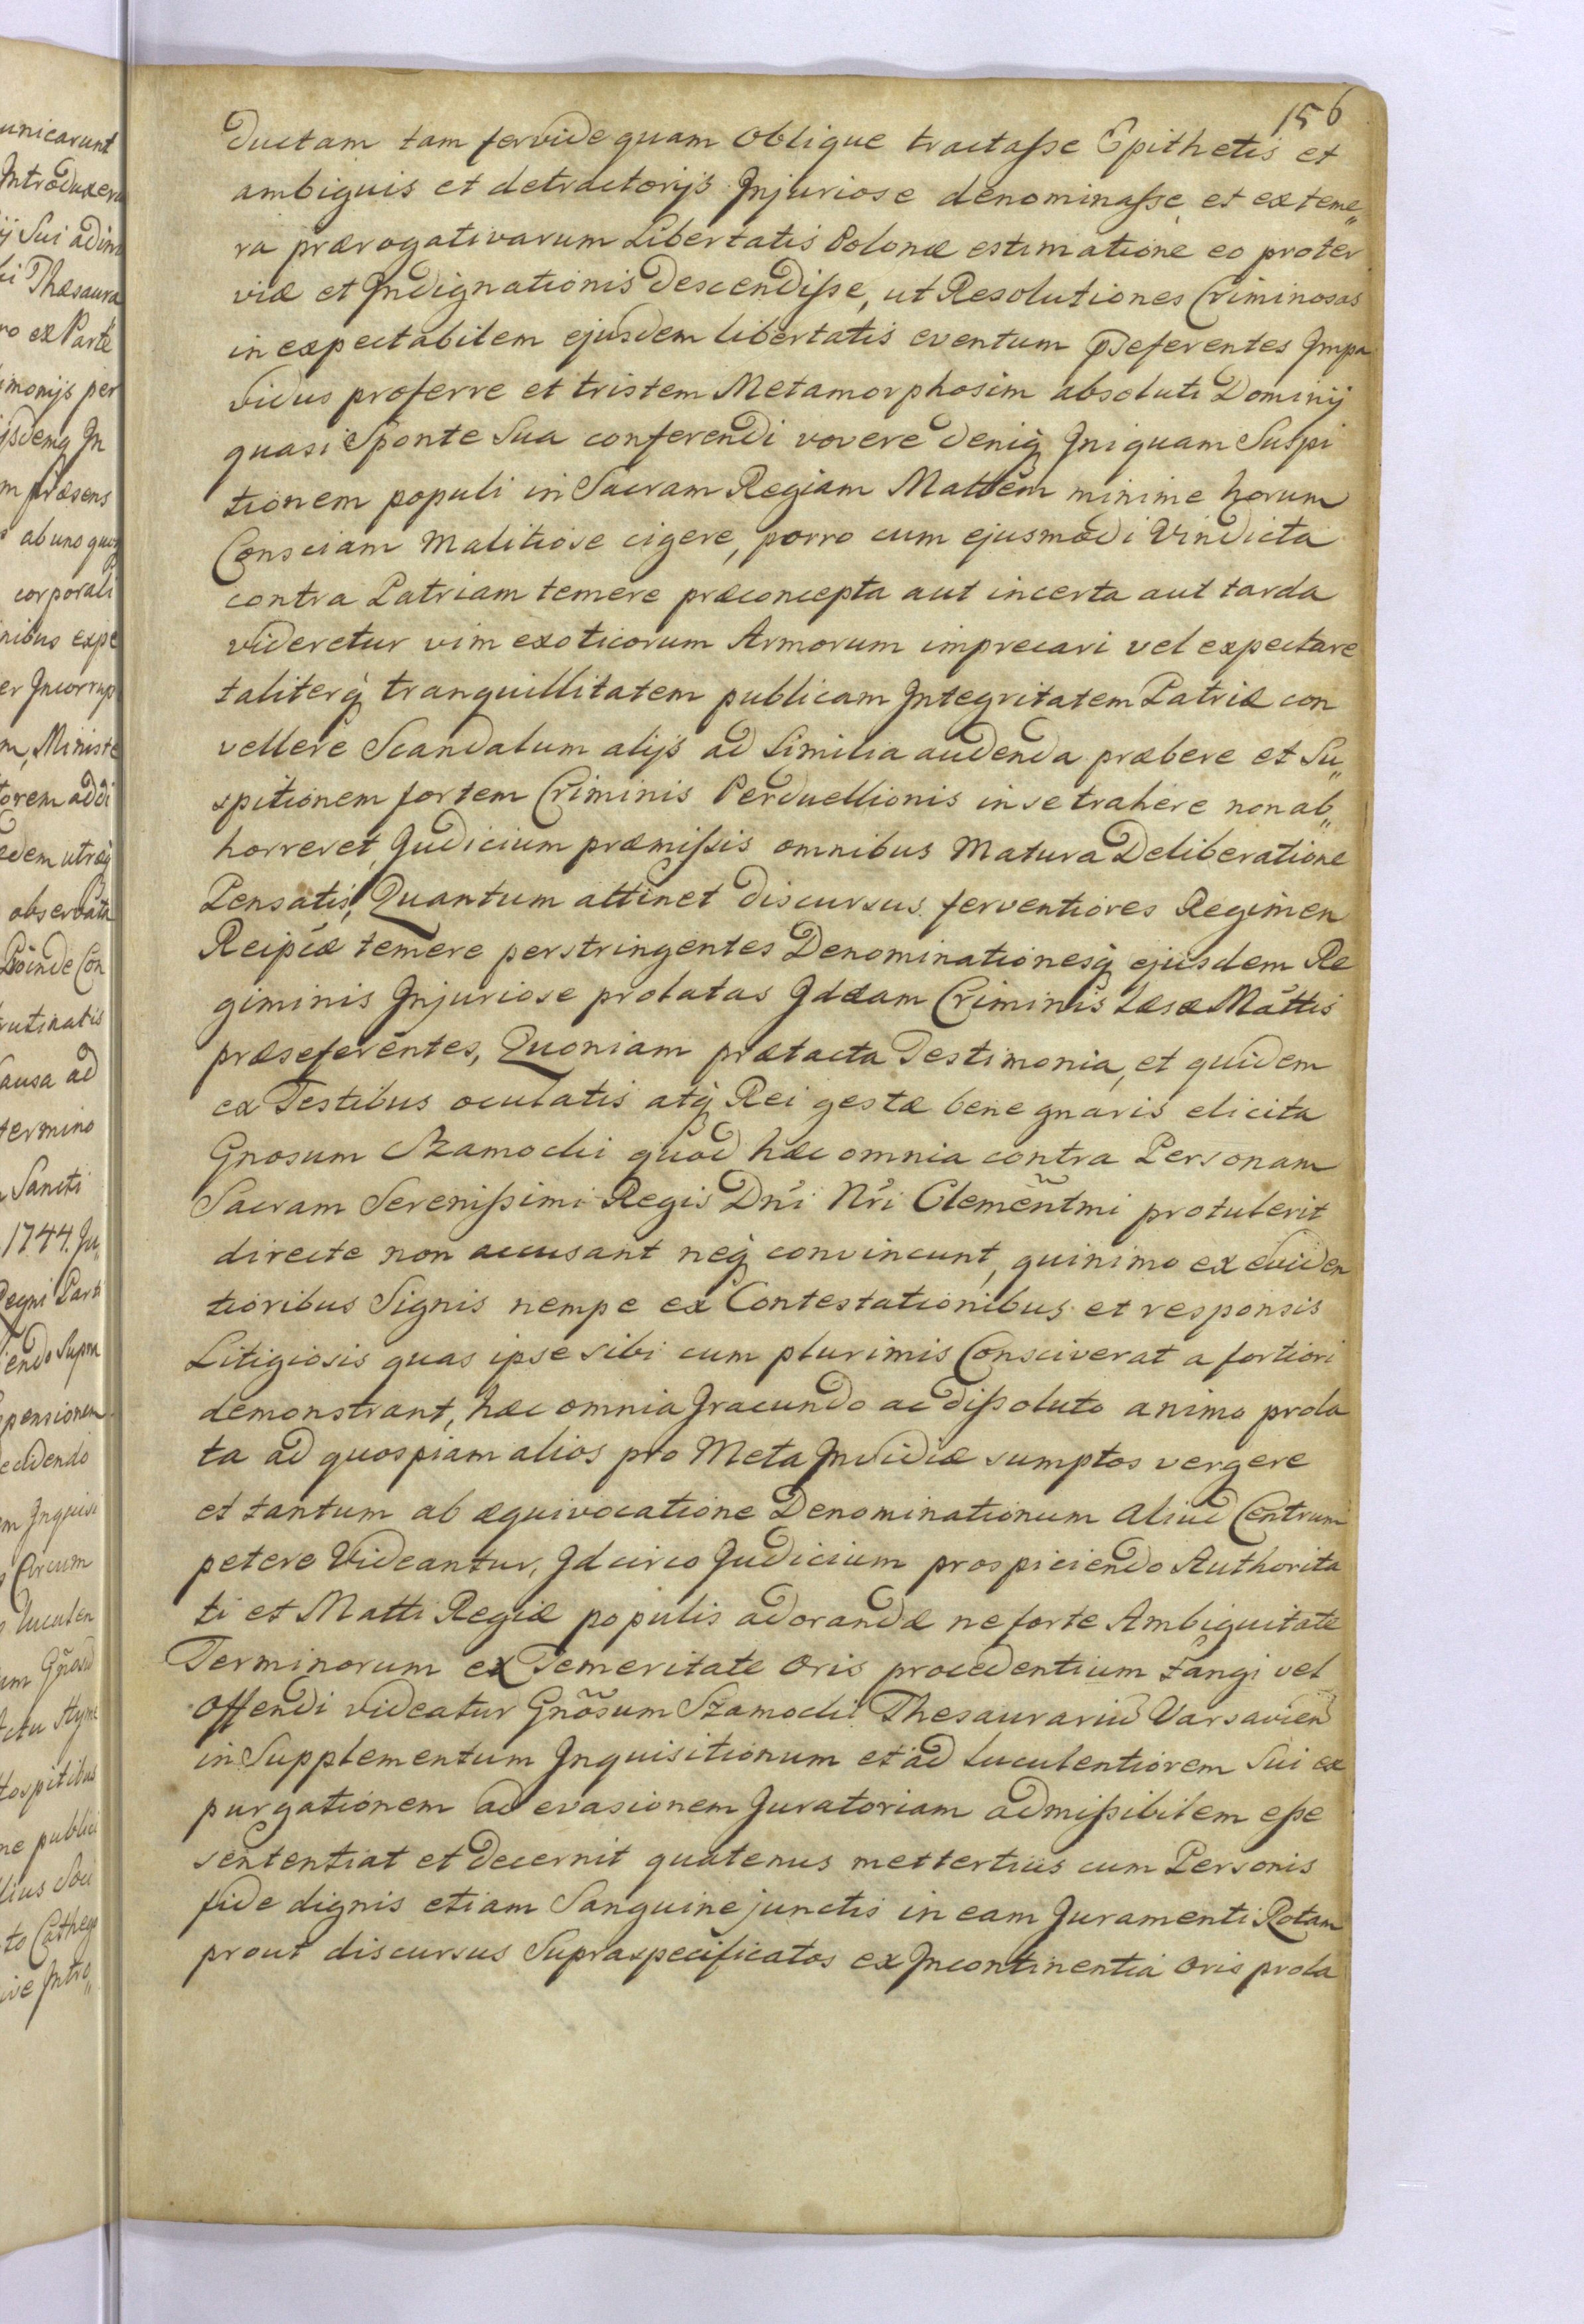 156
ductam tam fervide quam oblique tractasse Epithetis et
ambiguis et detractorijs Injuriose denominasse et ex teme„
ra prærogativarum Libertatis Polonæ estimatione eo proter
viæ et Indignationis descendisse, ut Resolutiones Criminosas
in expectabilem ejusdem libertatis eventum pdeferentes Impa
vidus proferre et tristem Metamorphosim absoluti Dominij
quasi Sponte Sua conferendi vovere deniq Iniquam Suspi
tionem populi in Sacram Regiam Mattem minime horum
Consciam malitiose cigere, porro cum ejusmodi Vindicta
contra Patriam temere præconcepta aut incerta aut tarda
videretur vim exoticorum Armorum imprecari vel expectare
taliterq tranquillitatem publicam Integritatem Patriæ con
vellere Scandalum alijs ad Similia audenda præbere et Su„
spitionem fortem Criminis Perduellionis in se trahere non ab„
horreret, Judicium præmissis omnibus Matura Deliberatione
Pensatis, Quantum attinet discursus ferventiores Regimen
Reipcæ temere perstringentes Denominationesq ejusdem Re
giminis Injuriose prolatas Ideam Criminis Læsæ Mattis
præseferentes, Quoniam prætacta Testimonia, et quidem
ex Testibus oculatis atq Rei gestæ bene gnaris elicita
Gnosum Szamocki quod hæc omnia contra Personam
Sacram Serenissimi Regis Dni Nri Clementmi protulerit
directe non accusant neq convincunt, quinimo ex eviden
tioribus Signis nempe ex Contestationibus et responsis
Litigiosis quas ipse sibi cum plurimis Consciverat a fortiori
demonstrant, hæc omnia Iracundo ac dissoluto animo prola
ta ad quospiam alios pro Meta Invidiæ sumptos vergere
et tantum ab æquivocatione Denominationum aliud Centrum
petere Videantur, Idcirco Judicium prospiciendo Authorita
ti et Matti Regiæ populis adorandæ ne forte Ambiguitate
Terminorum ex Temeritate oris procedentium tangi vel
offendi videatur Gnosum Szamocki Thesaurariu Varsavien
in Supplementum Inquisitionum et ad luculentiorem Sui ex
purgationem ad evasionem Juratoriam admissibilem esse
sententiat et decernit quatenus mettertius cum Personis
fide dignis etiam Sanguine junctis in eam Juramenti Rotam
prout discursus Supraspecificatos ex Incontinentia oris prola